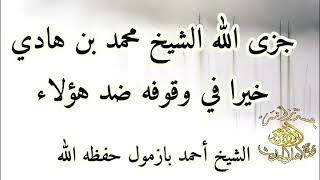 جزى الله الشيخ محمد بن هادي
خيرا في وقوفه ضد هؤلاء
الشيخ أحمد بازمول حفظه الله